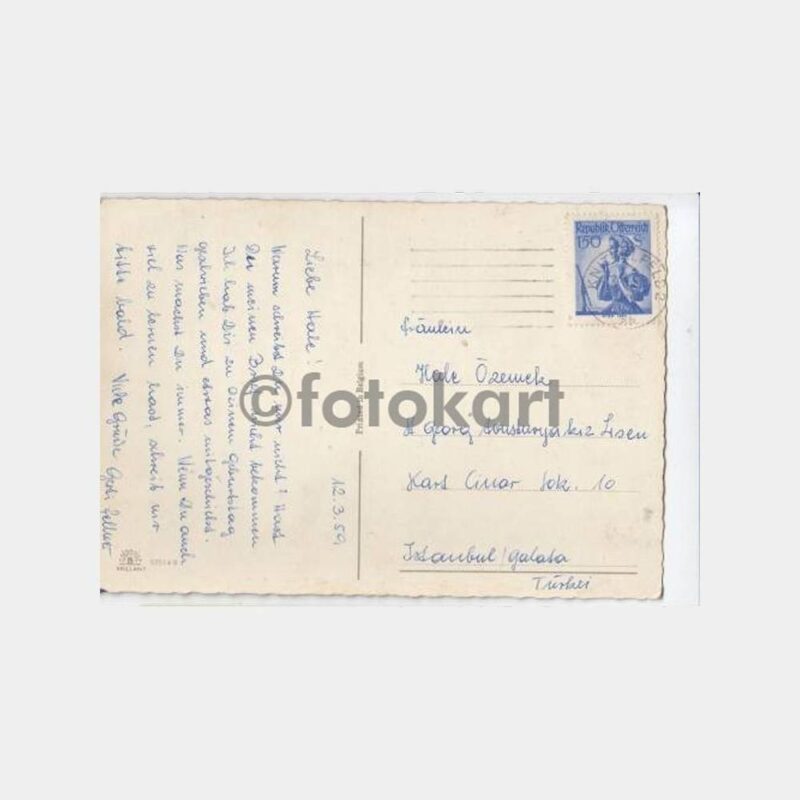 12.3.59
Liebe Hale!
Warum schreibst Du mir nicht? Hast
Du meinen Brief nicht bekommen
Ich hab Dir zu Deinem Geburtstag
geschrieben und etwas mitgeschickt.
Was machst Du immer. Wenn Du auch
viel zu lernen hast, schreib mir
bitte bald. Viele Grüße
Printed in Belgium
BRILLANT
Republik Österreich
1.50 S
Fräulein
Hale Özemek
St Georg Avusturya kız Lisesi
Kart Cinar Sok. 10
Istanbul/Galata
Türkei
©fotokart